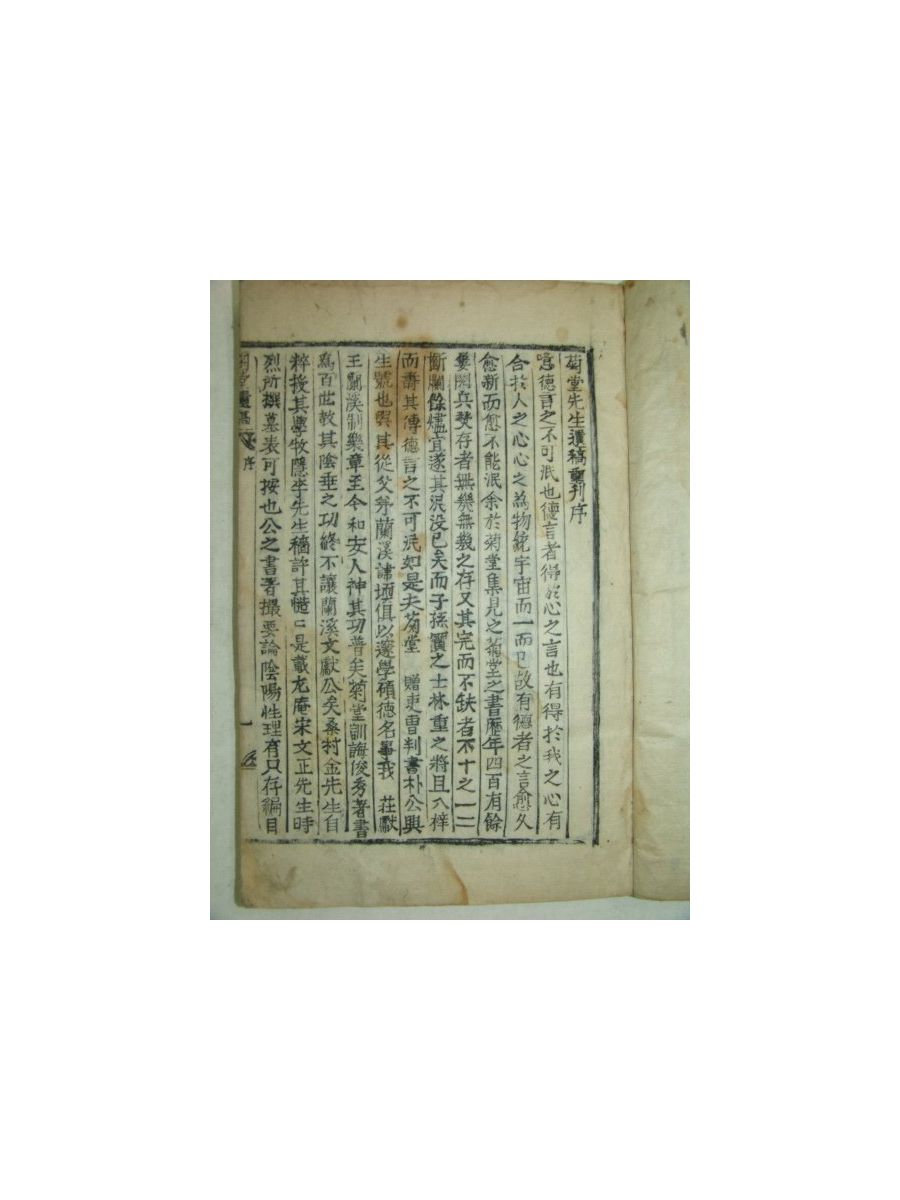 菊堂先生遺稿重刊序
噫德言之不可泯也德言者得於心之言也有得於我之心有
合於人之心心之為物窮宇宙而一而已故有德者之言愈久
愈新而愈不能泯余於菊堂集見之菊堂之書歷年四百有餘
婁閱兵燹存者無幾無幾之存又其完而不缺者不十之一二
斷爛餘燼宜遂其泯没已矣而子孫寶之士林重之將且入梓
而壽其傳德言之不可泯如是夫菊堂 贈吏曹判書朴公興
生號也與其從父弟蘭溪諱堧俱以邃學碩德名軰我 莊獻
王蘭溪制樂章至今和安人神其功普矣菊堂訓誨俊秀著書
為百世教其陰垂之功終不讓蘭溪文獻公矣桑村金先生自
粹授其學牧隱李先生穡許其 是載尤庵宋文正先生時
烈所撰墓表可按也公之書者撮要論陰陽性理有只存編目
菊堂遺稿 序 一